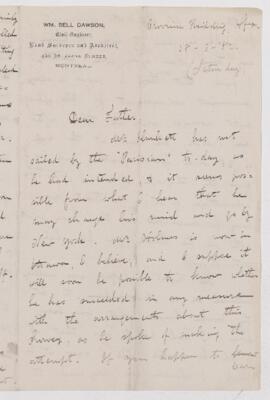 WM. BELL DAWSON,
Civil Engineer,
Land Surveyor and Architect,
MONTREAL.
Saturday
Dear Father,
has not
sailed by the "Parisian" to-day, as
he had intended & it seems pos-
sible from what I hear that he
may change his mind and go by
New York. Mr is now in
Ottawa, I believe, and I suppose it
will soon be possible to know whether
he has succeeded in any measure
with the arrangements about this
Survey, as he spoke of making the
attempt. If you happen to